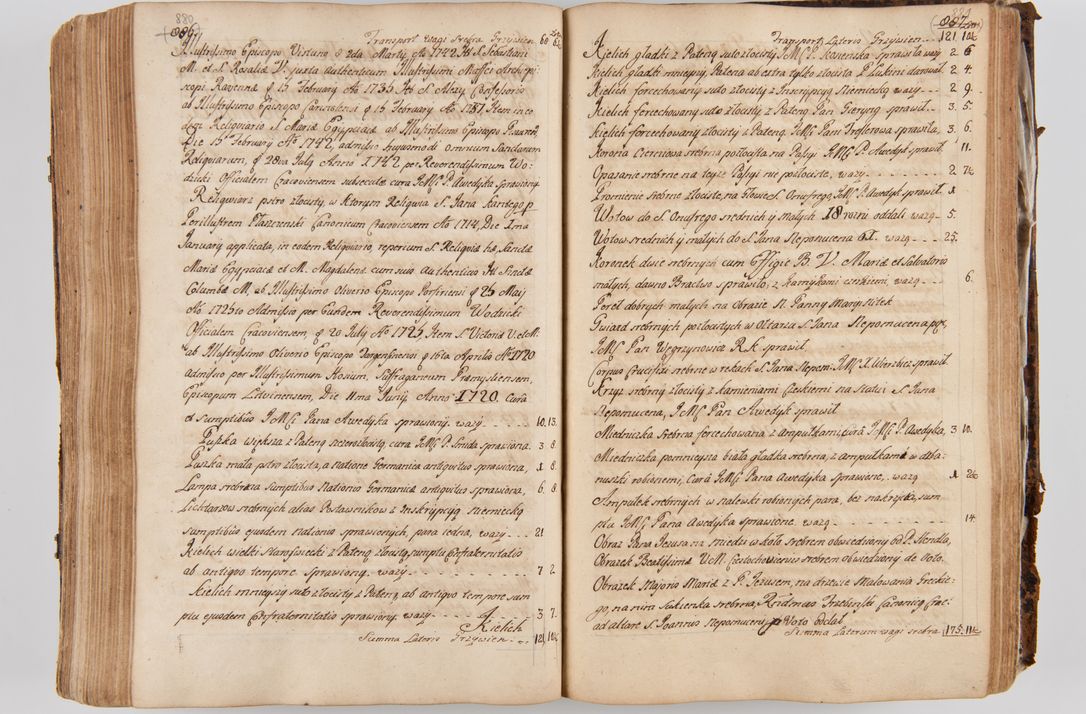 880
886
Transport wagi Srebra Grzywien 60
Illustrissimo Episcopo Vistano d 2da Martij Ao 1742. It. S. Sebastiani
M. et S. Rosaliæ V. juxta Authenticum Illustrissimi Maffei Archiepi-
scopi Ravennæ d 15 February Ao 1735 It. S. Alexy Confessoris
ab Illustrissimo Episcopo d 15 February Ao 1737. Item in eo-
dem Reliquiario S. Mariæ Egypciacæ ab Illustrissimo Episcopo
Die 15 February Ao 1742, admissio hujusmodi Omnium Sanctarum
Reliquiarum, d 28va July Anno 1742 per Reverendissimum Wo-
dzicki Officialem Cracoviensem subsecuta cura JeMci P. Awedyka sprawiony
Reliquiarz pstro złocisty, w ktorym Reliquia S. Jana Kantego p
Perillustrem Ptaszenski Canonicum Cracoviensem Ao 1714, Die Ima
January applicata, in eodem Reliquiario, reperium S. Reliquiæ hæ, Sanctæ
Mariæ Egypciacæ et M. Magdalenæ cum suis Authenticis It. Sanctæ
Columbæ M. ab Illustrissimo Oliverio Episcopo Porfiriensi d 25 Maij
Ao 1725to Admissio per Eundem Reverendissimum Wodzicki
Officialem Cracoviensem, d 20 July Ao 1725, Item S. Victoriæ V. et M.
ab Illustrissimo Oliverio Episcopo d 16ta Aprilis Ao 1720
admissio per Illustrissimum Hosium, Suffraganeum Præmysliensem,
Episcopum Die 11ma Junij Anno 1720. Cura
et sumptibus JeMci Pana Awedyka sprawiony. waży 10. 13.
Puszka większa z Pateną szczerozłocistą, cura JeMci P. Smida sprawiona 3 8
Puszka mała pstro złocista, a natione Germanica antiquitus sprawiona, 1 8.
Lampa srebrna sumptibus Nationis Germanicæ antiquitus sprawiona, 6. 8.
Lichtarzow srebrnych alias Postawnikow z Inskrypcyą niemiecką
sumptibus ejusdem nationis sprawionych, para iedna, waży 21
Kielich wielki z Pateną złocistą, sumptu Cofraternitatis
ab antiquo tempore sprawiony. waży 7 2
Kielich mnieyszy suto złocisty z Pateną, ab antiquo tempore sum
ptu ejusdem Confraternitatis sprawiony. waży 3 7.
Kielich
Summa Lateris Grzywien 121 10½
887
Transport Lateris Grzywien 121 10½
Kielich gładki z Pateną suto złocisty JeMci P. sprawiła waży 2 6
Kielich gładki mnieyszy, Patena ab extra tylko złocista P. Lukini darował 2 4.
Kielich forcechowany suto złocisty z Inscrypcyą Niemiecką waży 2 9.
Kielich forcechowany suto złocisty z Pateną Pan sprawił. 3. 5.
Kielich forcechowany złocisty z Pateną, JeMci Pani Treflerowa sprawiła. 3. 6.
Korona Cierniowa srebrna pozłocista na Passyi JeMci P. Awedyk sprawił 11.
Opasanie srebrne na teyże Passyi nie pozłociste, waży 2 7½
Promienie srebrne złociste, na Głowie S. Onufrego JeMci P. Awedyk sprawił. 1.
Wotow do S. Onufrego srednich y małych 18 oddali waży 5.
Wotow srednich y małych do S. Jana Nepomucena 61. ważą 25.
Koronek dwie srebrnych cum Effigie B. V. Mariæ et Salvatoris
małych, dawno Bractwo sprawiło, z kamykami czeskiemi, ważą 6.
Pereł dobrych małych na Obrazie N. Panny Maryi sztuk
Gwiazd srebrnych pozłocistych w Ołtarzu S. Jana Nepomucena
JeMci Pan Węgrzynowicz R. K. sprawił
Corpus Crucifixi srebrne w rękach S. Jana Nepom: JeMci X. sprawił
Krzyż srebrny złocisty z kamieniami Czeskiemi na Statui S. Jana
Nepomucena, JeMci Pan Awedyk sprawił
Miedniczka srebrna forcechowana z ampułkami, cura JeMci P. Awedyka, 3 10.
Miedniczka pomnieysza biała gładka srebrna, z ampułkami w dzba-
nuszki robionemi, Cura JeMci Pana Awedyka sprawione, ważą 1 2½
Ampułek srebrnych w nalewki robionych para, bez nakrycia, sum
ptu JeMci Pana Awedyka sprawione. ważą 14.
Obraz Pana Jezusa na miedzi w koło srebrem obwiedziony od P.
Obrazek Beatissimæ V. M. Częstochowiensis srebrem obwiedziony de Voto.
Obrazek Majoris Mariæ z P. Jezusem, na drzewie Malowania Greckie-
go, na nim Sukienka srebrna, Rndmus Trzebinski Canonicus Crac:
ad altare S. Joannis Nepomuceni p Voto oddał
Summa Laterum wagi srebra 175. 11½